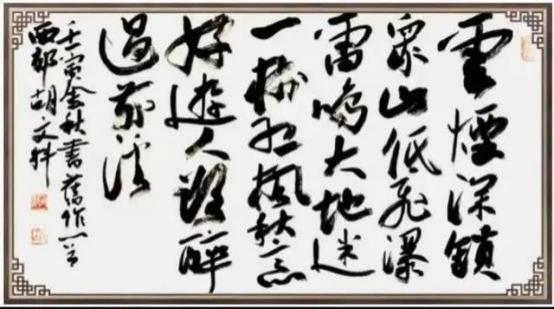 雲煙深鎖
衆山低飛瀑
雷鳴大地迷
一樹紅楓秋意
好遊人醉
過前溪
壬寅金秋書舊作一首
西胡文科